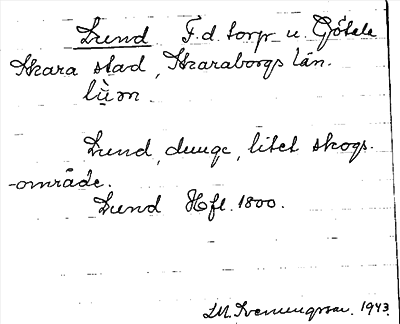 Lund F.d. torp u. Götala
Skara stad, Skaraborgs län.
lùn
Lund, dunge, litet skogs-
-område.
Lund Hfl. 1800.
1943.